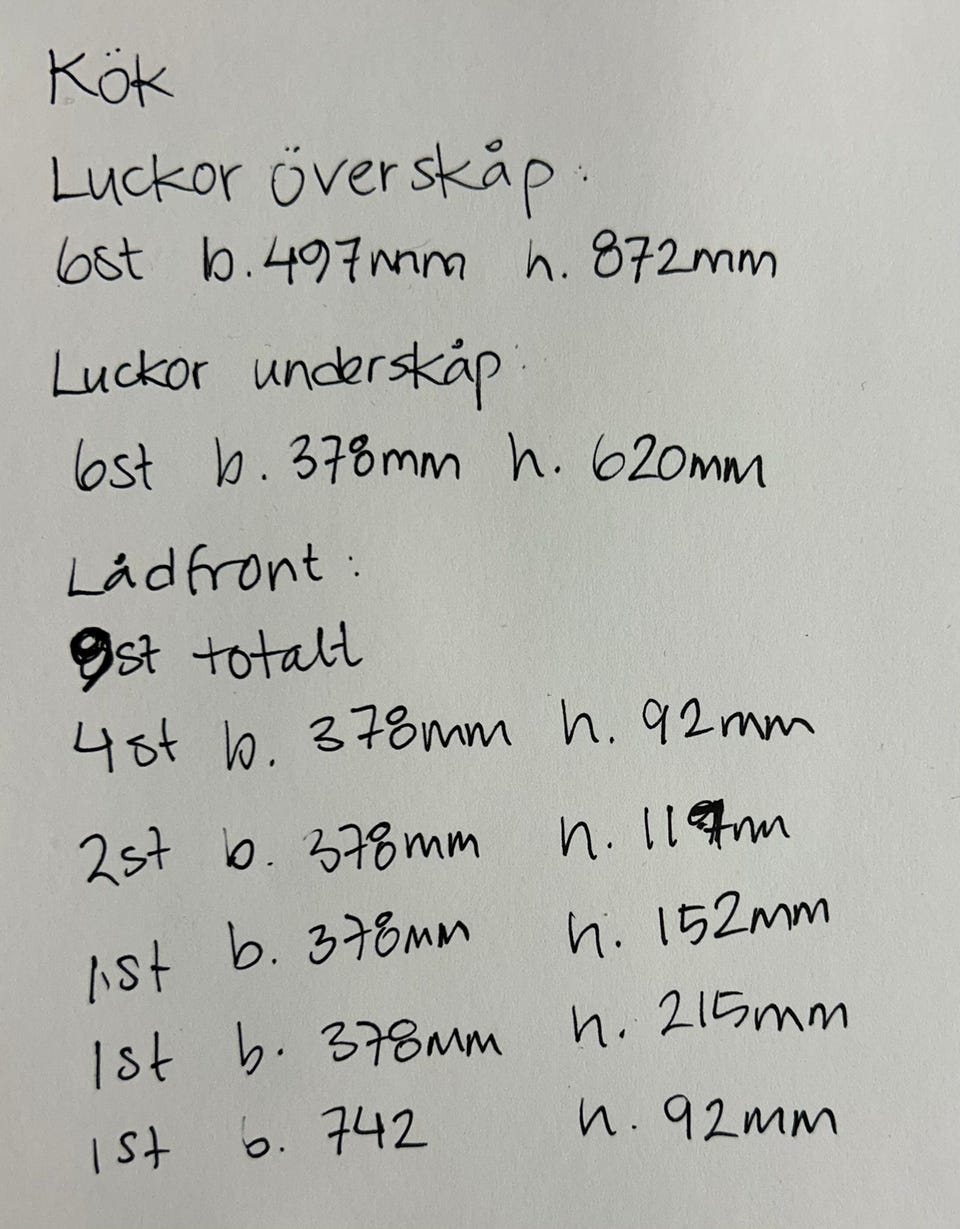 Kök
Luckor överskåp:
6st b. 497mm h. 872mm
Luckor underskåp:
6st b. 378mm h. 620mm
Lådfront:
9st totalt
4st b. 378mm h. 92mm
2st b. 378mm h.
1st b. 378mm h. 152mm
1st b. 378mm h. 215mm
1st b. 742 h. 92mm